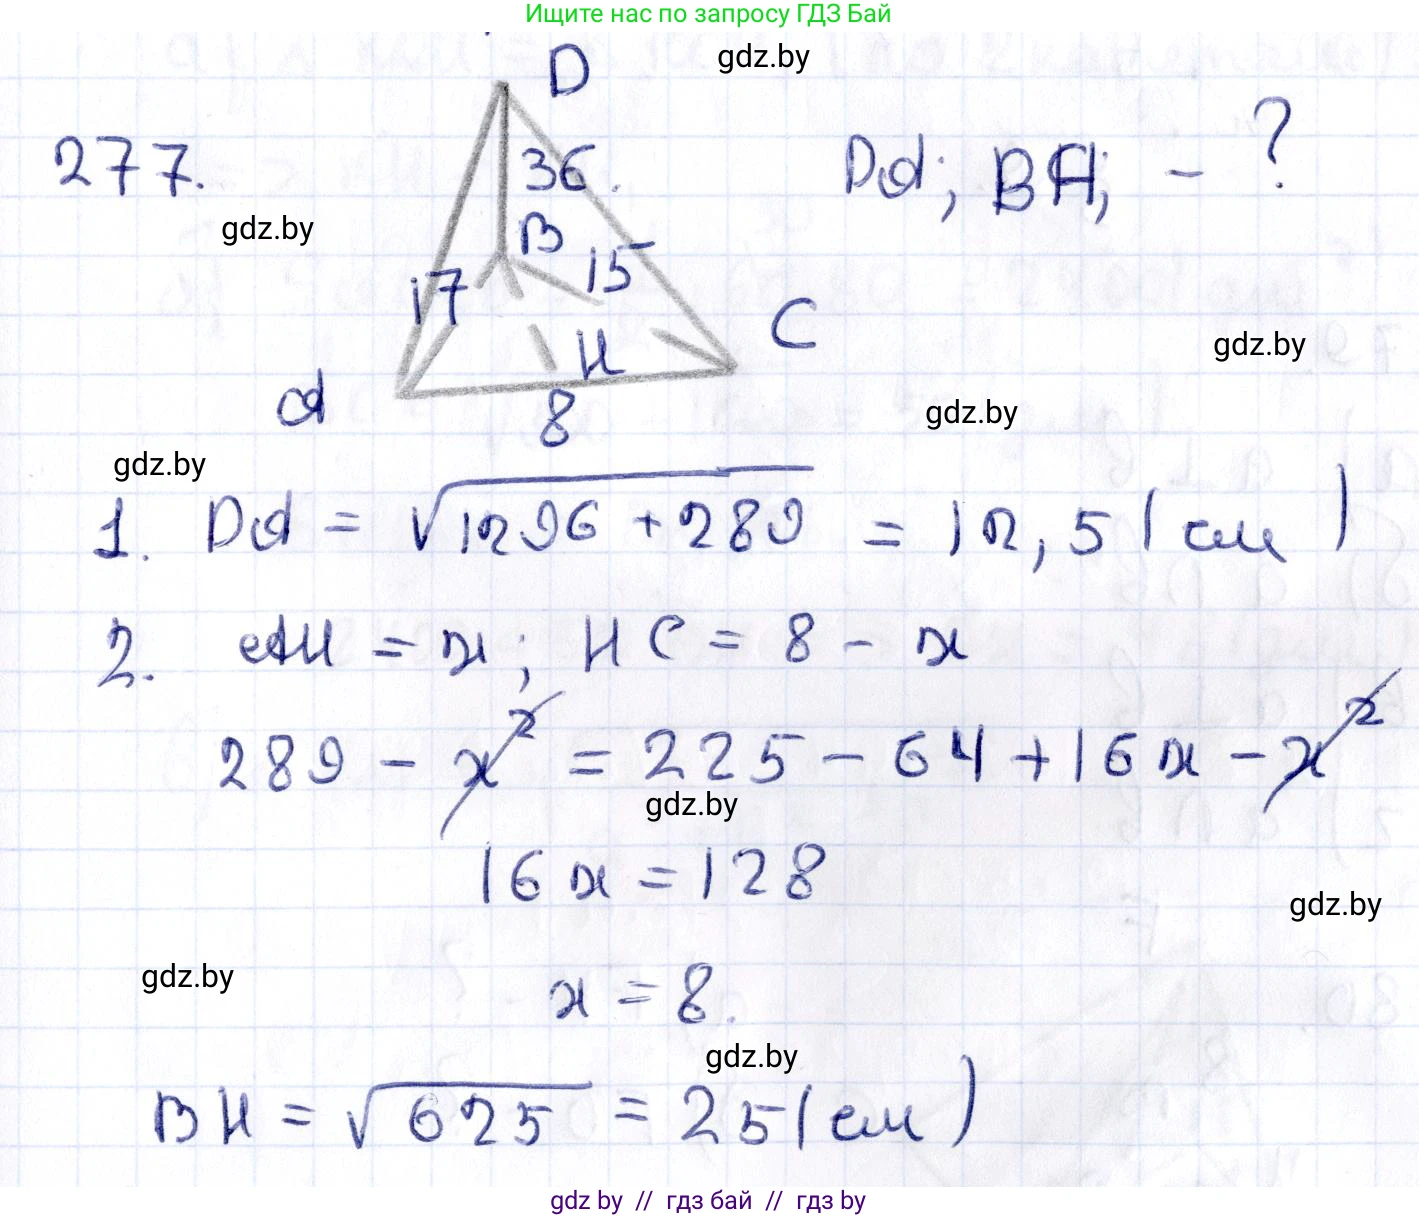 Ищите нас по запросу ГДЗ Бай
gdz.by
D
277.
36.
DA; BA; - ?
gdz.by
B
15
17
C
gdz.by
H
A
8
gdz.by
gdz.by
1. DA = √1296 + 289 = 12,5 (см)
2. AH = x; HC = 8 - x
289 - x² = 225 - 64 + 16x - x²
gdz.by
16x = 128
gdz.by
gdz.by
x = 8.
gdz.by
BH = √625 = 25 (см)
gdz by // гдз бай // гдз by